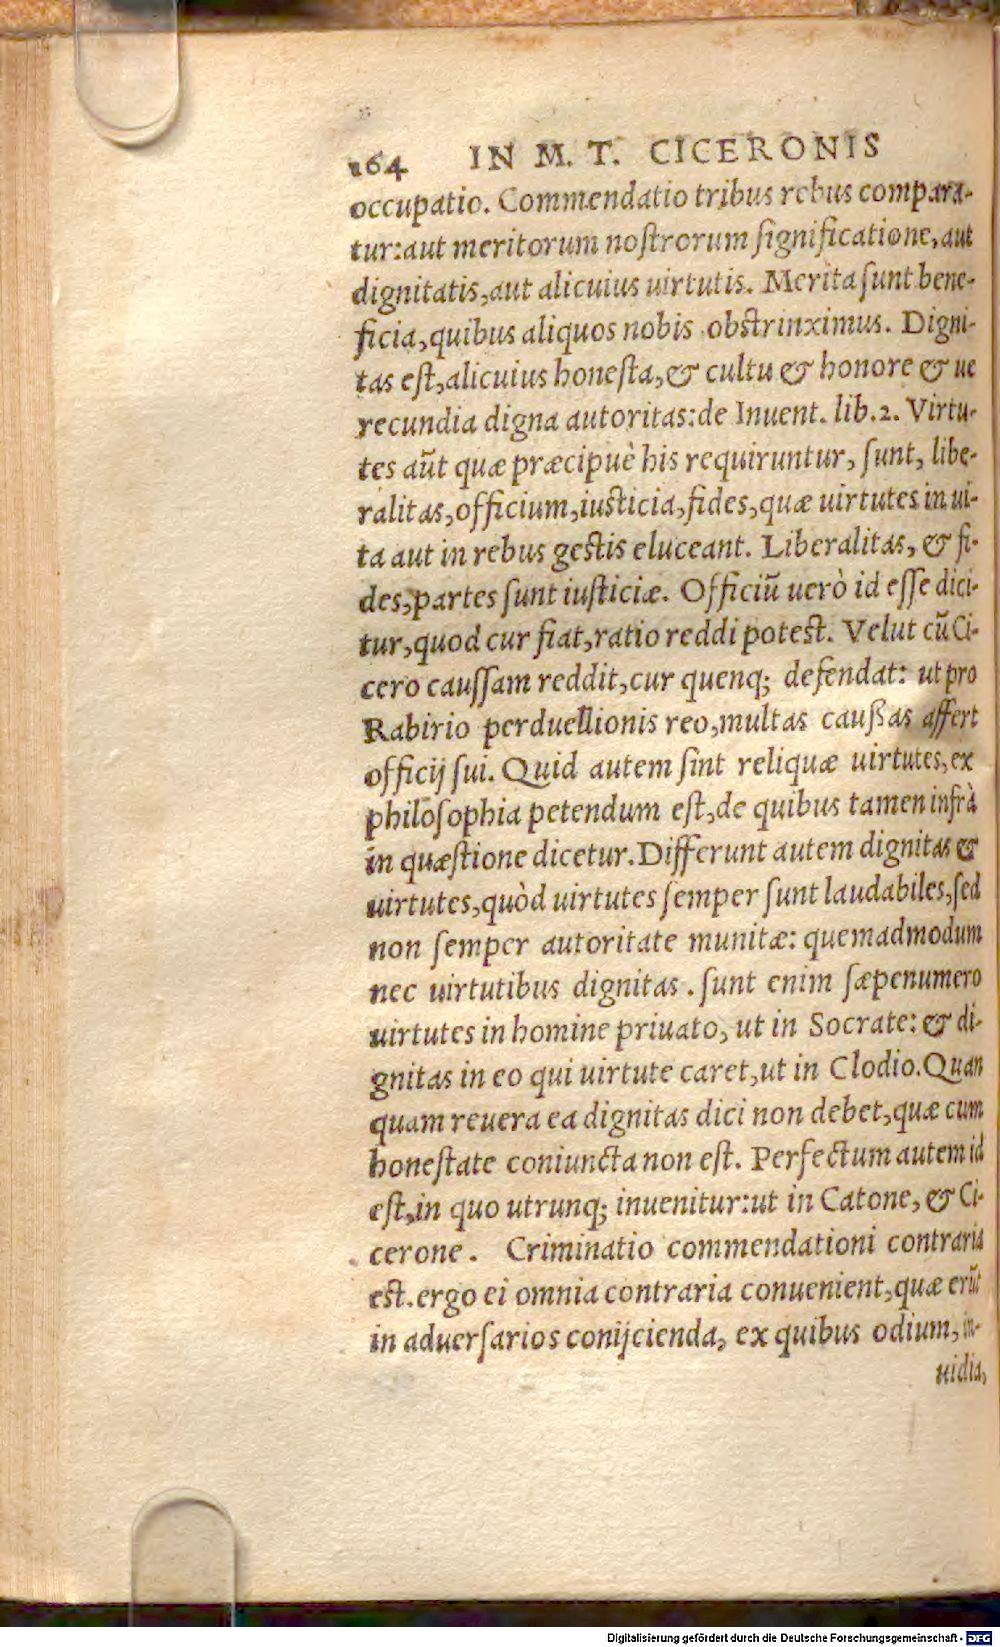 164 IN M. T. CICERONIS
occupatio. Commendatio tribus rebus compara-
tur:aut meritorum noſtrorum ſignificatione, aut
dignitatis,aut alicuius uirtutis. Merita ſunt bene-
ficia,quibus aliquos nobis obſtrinximus. Digni-
tas eſt,alicuius honeſta,& cultu & honore & ue
recundia digna autoritas:de Inuent. lib.2. Virtu-
tes aūt quæ præcipuè his requiruntur, ſunt, libe-
ralitas,officium,iuſticia,fides,quæ uirtutes in ui-
ta aut in rebus geſtis eluceant. Liberalitas, & fi-
des,partes ſunt iuſticiæ. Officiū uerò id eſſe dici-
tur,quod cur fiat,ratio reddi poteſt. Velut cū Ci-
cero cauſſam reddit,cur quenq; defendat: ut pro
Rabirio perduellionis reo,multas cauſſas affert
officij ſui. Quid autem ſint reliquæ uirtutes, ex
philoſophia petendum eſt,de quibus tamen infrà
in quæſtione dicetur. Differunt autem dignitas &
uirtutes,quòd uirtutes ſemper ſunt laudabiles, ſed
non ſemper autoritate munitæ: quemadmodum
nec uirtutibus dignitas . ſunt enim ſæpenumero
uirtutes in homine priuato, ut in Socrate: & di-
gnitas in eo qui uirtute caret,ut in Clodio. Quan
quam reuera ea dignitas dici non debet,quæ cum
honeſtate coniuncta non eſt. Perfectum autem id
eſt,in quo utrunq; inuenitur:ut in Catone, & Ci-
cerone. Criminatio commendationi contraria
eſt. ergo ei omnia contraria conuenient,quæ erūt
in aduerſarios conijcienda, ex quibus odium, in-
uidia,
Digitalisierung gefördert durch die Deutsche Forschungsgemeinschaft - DFG